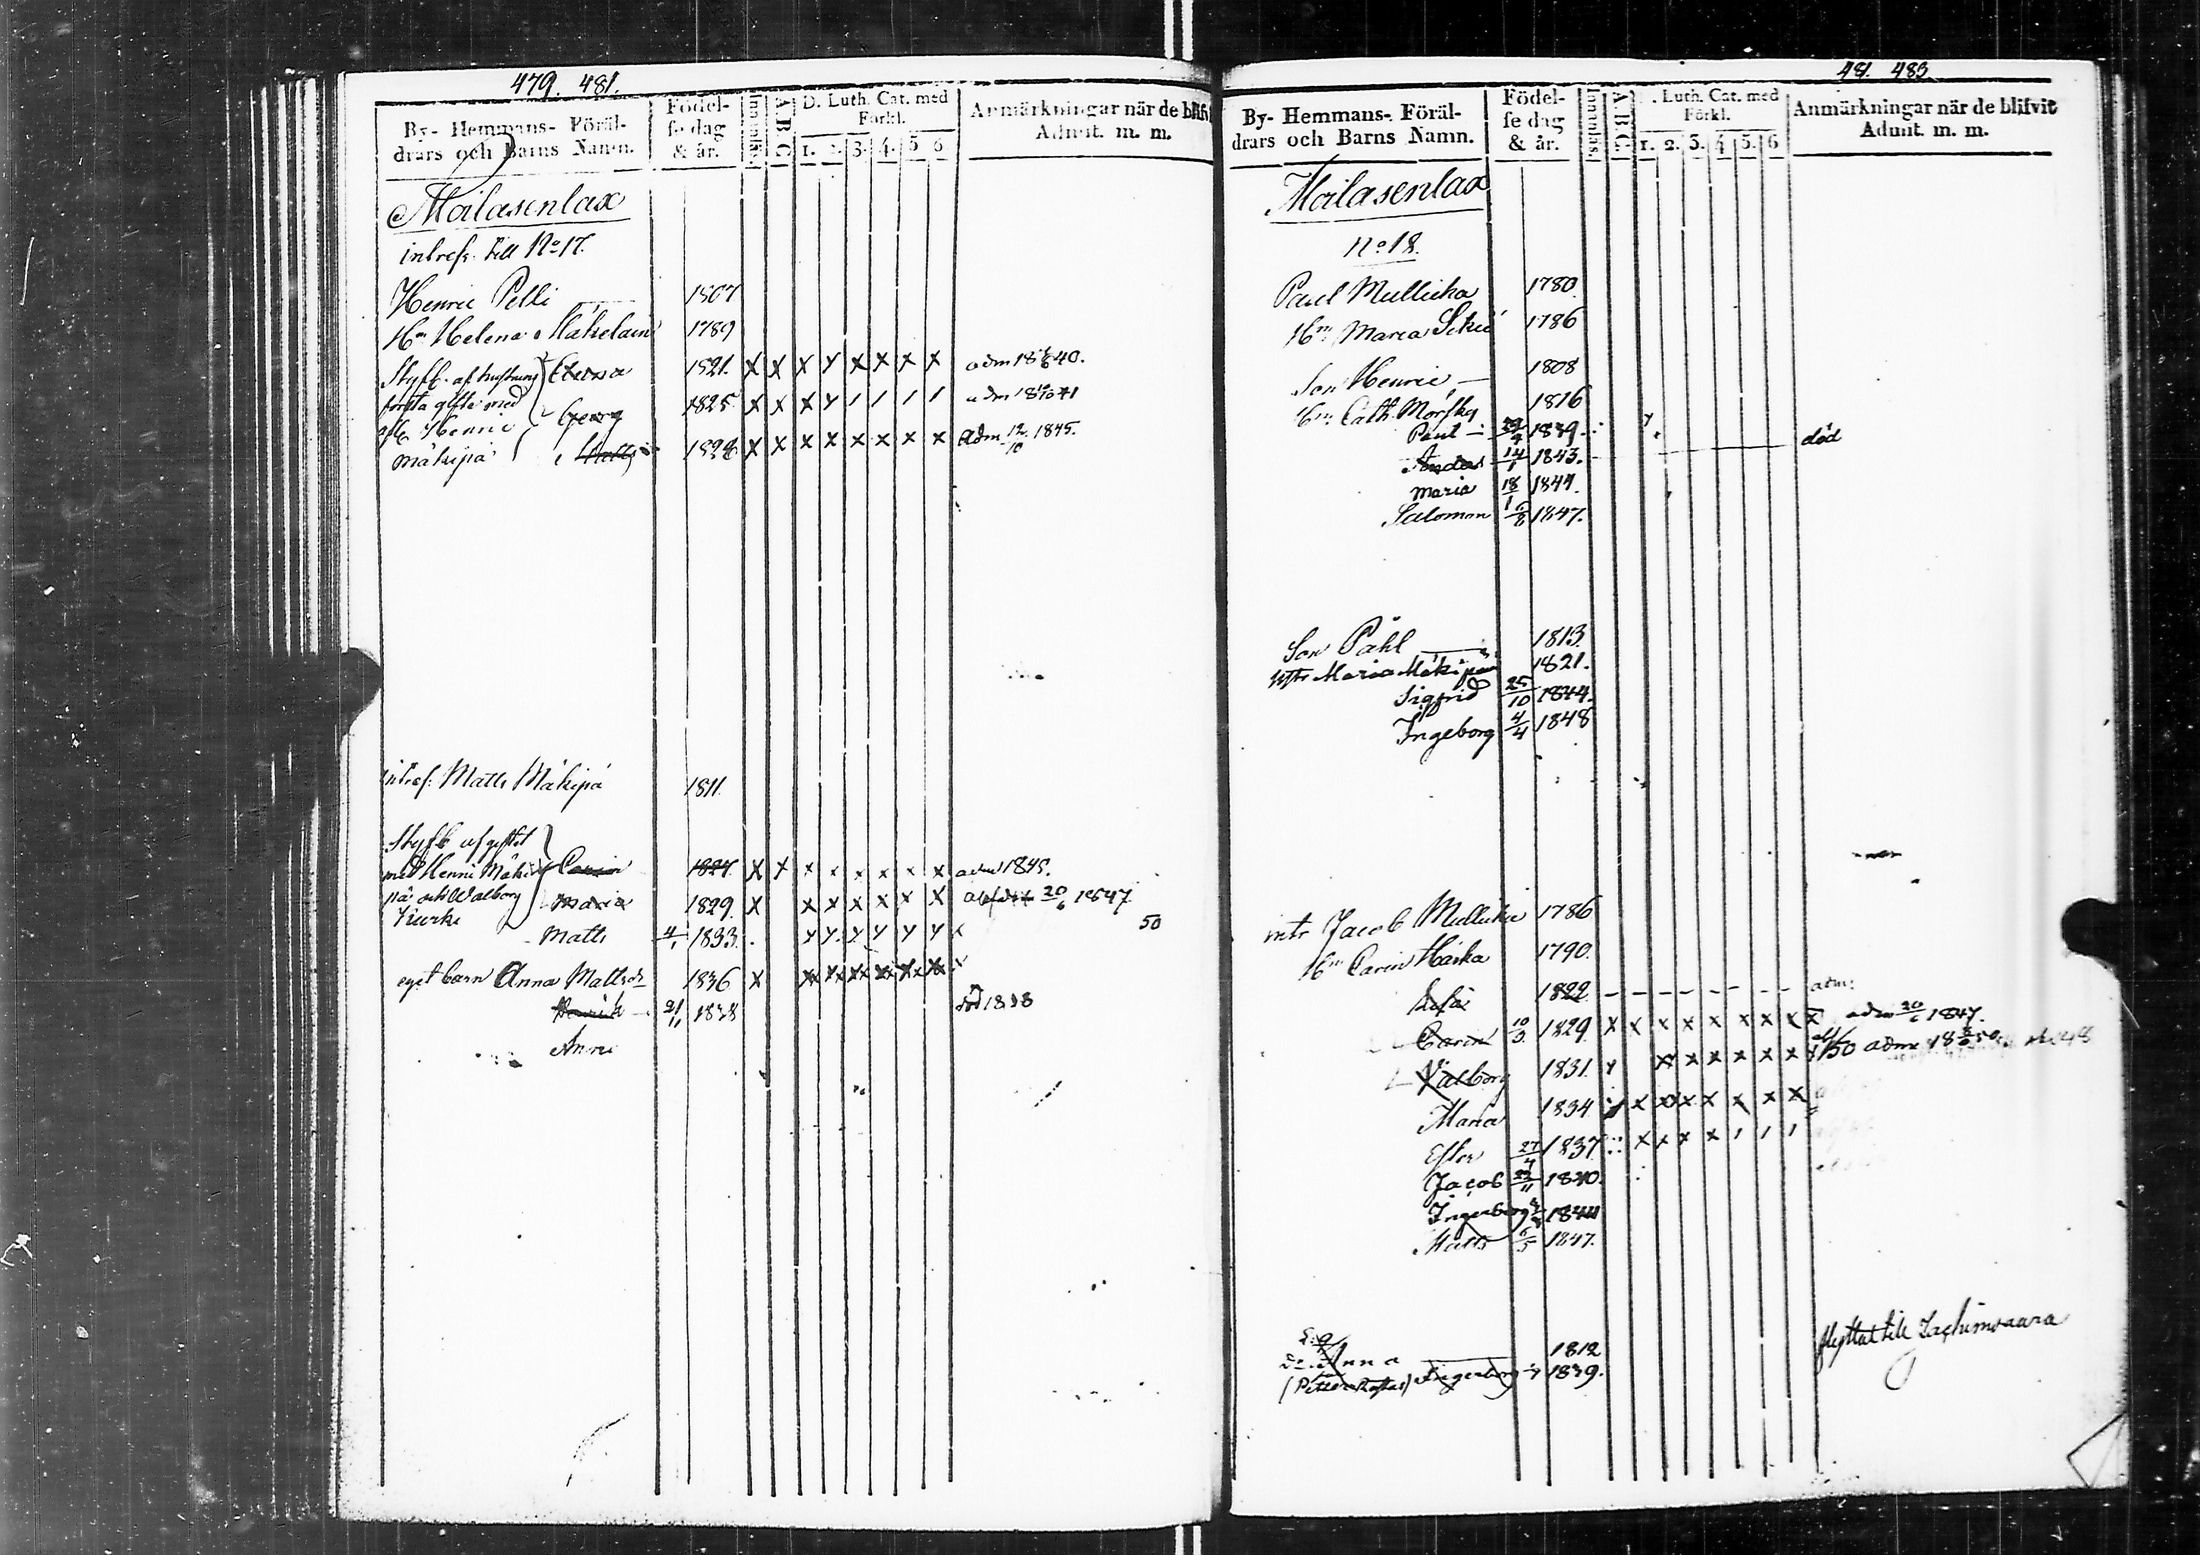 479. 481.
By- Hemmans- Föräl-
drars och Barns Namn.
Födel-
se dag
& år.
Innanläs.
A.B.C.
D. Luth. Cat. med
Förkl.
1. 2. 3. 4. 5 6
Anmärkningar när de blifvit
Admit. m. m.
Mailasenlax
intress. till No 17.
Henric Pelli 1807
Hu Helena Mäkeläin 1789
Styfb. af hustruns 1821. X X X Y X X X X adm 18 40.
första gifte med Georg 1825 X X X Y 1 1 1 1 adm 18 41
Henric
Mäkipä Matts X X X X X X X X Adm. 12/10 1845.
intress. Matts Mäkipä 1811.
Styfb af giftet
med Henric Mäki- Carin 1827. X X X X X X X X adm 1845.
pä och Walborg Maria 1829. X X X X X X X 20/6 1847
Kiurki
Matts 4/1 1833. Y Y Y Y Y Y X 50
eget barn Anna Mattsdr 1836 X
Henrik 21/11 1838 död 1838
Anni
481. 483
By- Hemmans- Föräl-
drars och Barns Namn.
Födel-
se dag
& år.
Innanläs.
A.B.C.
D. Luth. Cat. med
Förkl.
1. 2. 3. 4 5. 6
Anmärkningar när de blifvit
Admit. m. m.
Mailasenlax
No 18.
Paul Mullikka 1780
Hu Maria 1786
Son Henric 1808
Hu Cath. Mörsky 1816
Paul 1839.
Anders 14/1 1843. död
Maria 18/1 1844.
Salomon 1847.
Son Påhl 1813
Hu Maria Mäkipää 1821.
Sigfrid 25/10 1844.
Ingeborg 4/4 1848
intr Jacob Mullikka 1786
Hu Carin Härkä 1790.
1822 adm:
Carin 10/3 1829 X X X X X X X X X adm 20/6 1847.
Valborg 1831. Y X X X X X X 50 adm
Maria 1834 X X X X X X X
Ester 27/4 1837 X X X X 1 1 1
Jacob 1840.
Ingeborg 1844
Matts 1847.
Anna 1812 flyttat till Jachimvaara
Ingeborg 1839.